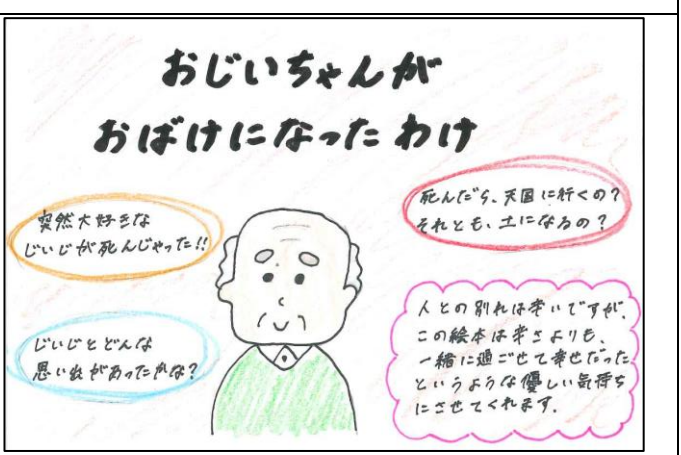 おじいちゃんが
おばけになったわけ
突然大好きな
じいじが死んじゃった!!
死んだら、天国に行くの?
それとも、土になるの?
じいじとどんな
思い出があったかな?
人との別れは辛いですが、
この絵本は辛さよりも、
一緒に過ごせて幸せだった
というような優しい気持ち
にさせてくれます。